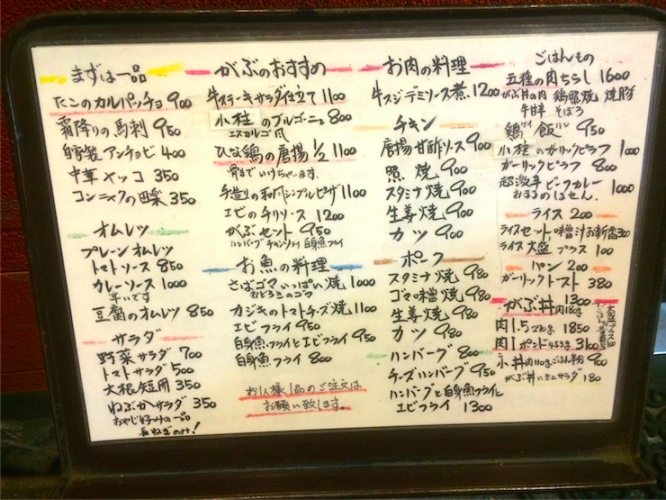 まずは一品
たこのカルパッチョ 900
霜降りの馬刺 950
自家製アンチョビ 400
中華ヤッコ 350
コンニャクの田楽 350
オムレツ
プレーンオムレツ
トマトソース 850
カレーソース 1000
辛いです
豆腐のオムレツ 850
サラダ
野菜サラダ 700
トマトサラダ 500
大根短冊 350
ねぶかサラダ 350
おやじ好みの一品
長ねぎのみ!
がぶのおすすめ
牛ステーキサラダ仕立て 1100
小柱のブルゴーニュ 800
エスカルゴ風
ひな鶏の唐揚 1/2 1100
骨までいけちゃいます
手造りの和風シンプルピザ 1100
エビのチリソース 1200
がぶセット 950
ハンバーグ チキンソテー 白身魚フライ
お魚の料理
さばゴマいっぱい焼 1000
おどろきのゴマ
カジキのトマトチーズ焼 1100
エビフライ 950
白身魚フライとエビフライ 950
白身魚フライ 800
お1人様1品のご注文は
お願い致します。
お肉の料理
牛スジデミソース煮 1200
チキン
唐揚甘酢ソース 900
照焼 900
スタミナ焼 900
生姜焼 900
カツ 900
ポーク
スタミナ焼 980
ゴマ味噌焼 980
生姜焼 980
カツ 980
ハンバーグ 800
チーズハンバーグ 950
ハンバーグと白身魚フライと
エビフライ 1300
ごはんもの
五種の肉ちらし 1600
がぶ丼の肉 鶏照焼 焼豚
牛甘辛 そぼろ
鶏飯 950
小柱のガーリックピラフ 1000
ガーリックピラフ 800
超激辛ビーフカレー 1000
ライス 200
ライスセット 味噌汁お新香 300
ライス大盛プラス 100
パン 200
ガーリックトースト 380
がぶ丼 1300
肉1.5 270g 1850
肉1ポンド 453g 3100
小丼 肉110gごはん半分 900
がぶ丼にミニサラダ 180